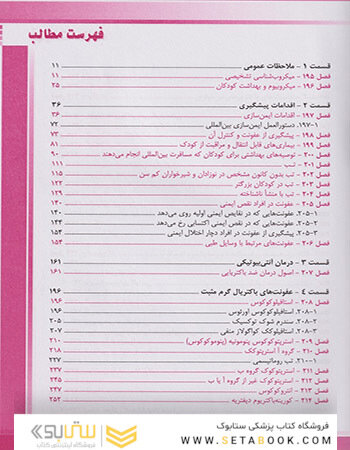 فهرست مطالب
قسمت ۱ - ملاحظات عمومی ۱۱
فصل ۱۹۵ - میکروب‌شناسی تشخیصی ۱۱
فصل ۱۹۶ - میکروبیوم و بهداشت کودکان ۲۵
قسمت ۲ - اقدامات پیشگیری ۳۶
فصل ۱۹۷ - اقدامات ایمن‌سازی ۳۶
۱-۱۹۷ دستورالعمل ایمن‌سازی بین‌المللی ۷۲
فصل ۱۹۸ - پیشگیری از عفونت و کنترل آن ۷۳
فصل ۱۹۹ - بیماری‌های قابل انتقال و مراقبت از کودک ۸۱
فصل ۲۰۰ - توصیه‌های بهداشتی برای کودکان که مسافرت بین‌المللی انجام می‌دهند ۹۰
فصل ۲۰۱ - تب ۱۱۱
فصل ۲۰۲ - تب بدون کانون مشخص در نوزادان و شیرخواران کم سن ۱۱۵
فصل ۲۰۳ - تب در کودکان بزرگتر ۱۲۲
فصل ۲۰۴ - تب با منشأ ناشناخته ۱۲۹
فصل ۲۰۵ - عفونت در افراد نقص ایمنی ۱۴۰
۱-۲۰۵ عفونت‌هایی که در نقایص ایمنی اولیه روی می‌دهد ۱۴۰
۲-۲۰۵ عفونت‌هایی که در نقص ایمنی اکتسابی رخ می‌دهد ۱۴۴
۳-۲۰۵ پیشگیری از عفونت در افراد دچار اختلال ایمنی ۱۵۴
فصل ۲۰۶ - عفونت‌های مرتبط با وسایل طبی ۱۵۴
قسمت ۳ - درمان آنتی‌بیوتیکی ۱۶۱
فصل ۲۰۷ - اصول درمان ضد باکتریایی ۱۶۱
قسمت ۴ - عفونت‌های باکتریال گرم مثبت ۱۹۶
فصل ۲۰۸ - استافیلوکوکوس ۱۹۶
۱-۲۰۸ استافیلوکوکوس اورئوس ۱۹۶
۲-۲۰۸ سندرم شوک توکسیک ۲۰۵
۳-۲۰۸ استافیلوکک کواگولاز منفی ۲۰۷
فصل ۲۰۹ - استرپتوکوکوس پنومونیه (پنوموکوکوس) ۲۱۰
فصل ۲۱۰ - گروه آ استرپتوکک ۲۱۸
۱-۲۱۰ تب روماتیسمی ۲۲۷
فصل ۲۱۱ - استرپتوکوک گروه ب ۲۳۷
فصل ۲۱۲ - استرپتوکوک غیر از گروه آ یا ب ۲۴۵
فصل ۲۱۳ - انتروکوکوس ۲۴۷
فصل ۲۱۴ - کورینه‌باکتریوم دیفتریه ۲۵۲
فروشگاه کتاب پزشکی ستابوک
WWW.SETABOOK.COM
ستابوک
فروشگاه اینترنتی کتاب